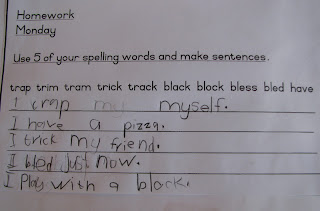 Homework
Monday
Use 5 of your spelling words and make sentences.
trap trim tram trick track black block bless bled have
I crap my myself.
I have a pizza.
I trick my friend.
I bled just now.
I Play with a block.